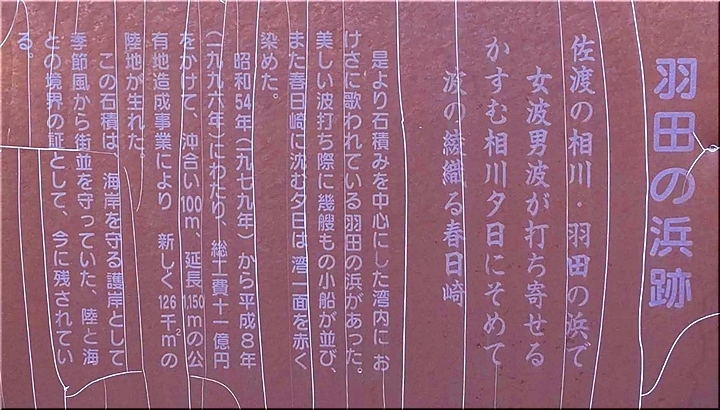 羽田の浜跡
佐渡の相川・羽田の浜で
女波男波が打ち寄せる
かすむ相川夕日にそめて
波の綾織る春日崎
是より石積みを中心にした湾内に お
けさに歌われている羽田の浜があった。
美しい波打ち際に幾艘もの小船が並び、
また春日崎に沈む夕日は 湾一面を赤く
染めた。
昭和54年(一九七九年) から平成8年
(一九九六年)にわたり、総工費十一億円
をかけて、沖合い100m、延長1,150mの公
有地造成事業により 新しく126千㎡の
陸地が生れた。
この石積は、海岸を守る護岸として
季節風から街並を守っていた、陸と海
との境界の証として、今に残されてい
る。